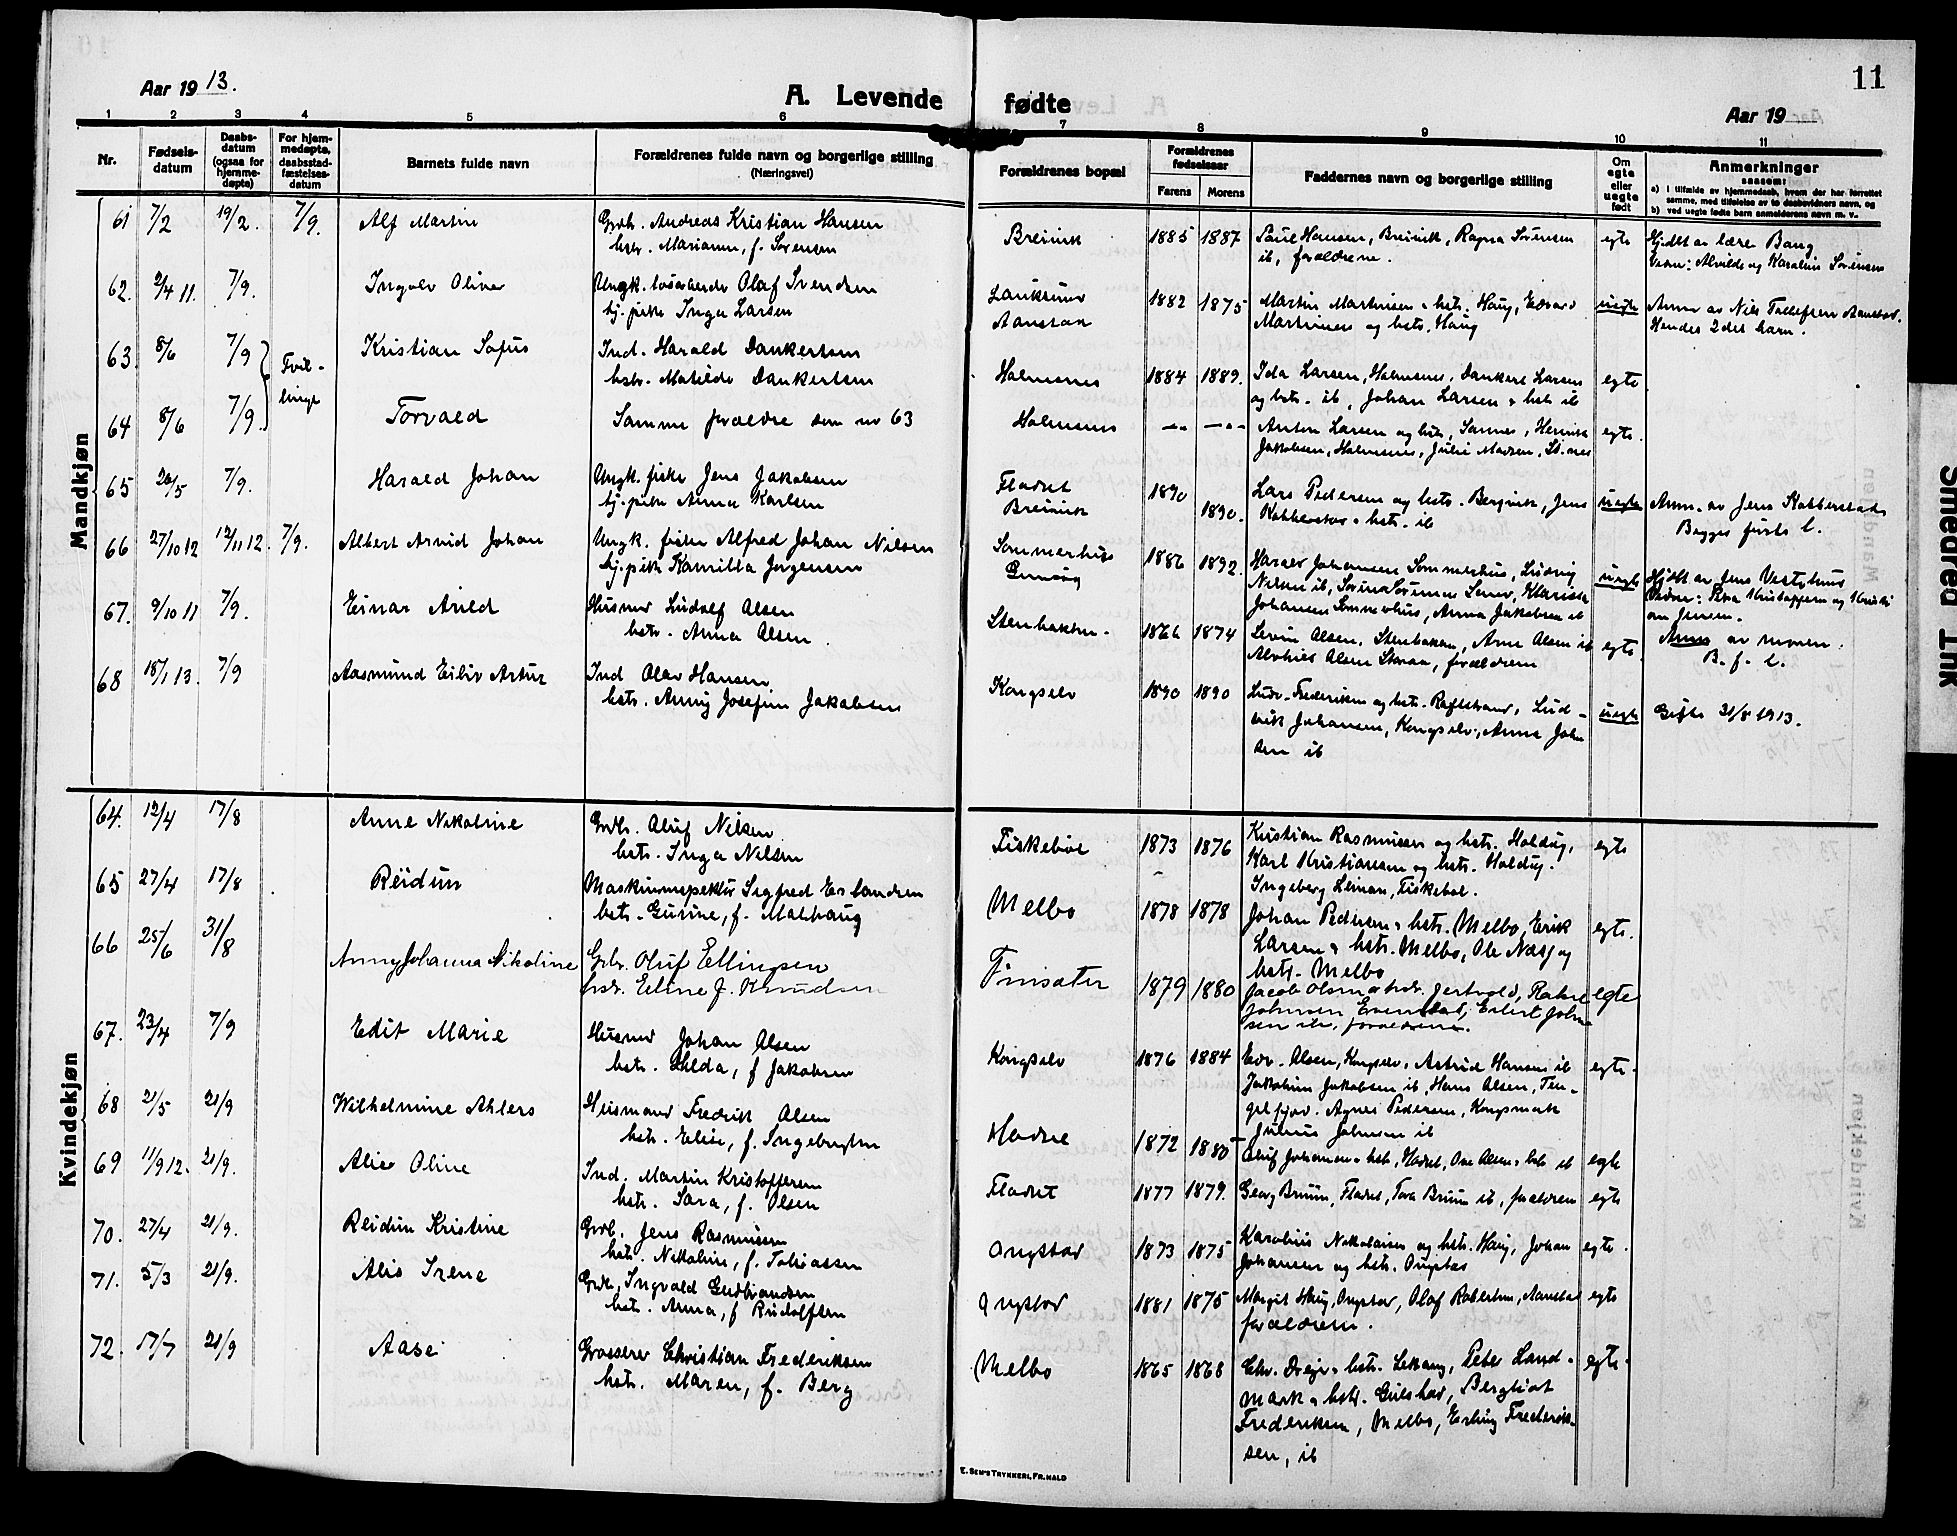 Aar 1913.
A. Levende fødte
Aar 19
11
1 2 3 4 5 6 7 8 9 10 11
Nr.
Fødsels-
datum
Daabs-
datum
(ogsaa for
hjemme-
døpte)
For hjem-
medøpte,
daabsstad-
fæstelses-
datum
Barnets fulde navn
Forældrenes fulde navn og borgerlige stilling
(Næringsvei)
Forældrenes bopæl
Forældrenes
fødselsaar
Farens Morens
Faddernes navn og borgerlige stilling
Om
egte
eller
uegte
født
Anmerkninger
saasom:
a) i tilfælde av hjemmedaab, hvem der har forrettet
samme, med tilføielse av to daabsvidners navn, og
b) ved uegte fødte barn anmelderens navn m. v.
Mandkjøn
61 7/2 19/2. 7/9. Alf Martin Grdb. Andreas Kristian Hansen
hstr. Marianne, f. Sørensen
Breivik 1885 1887 Paul Hansen, Breivik, Ragna Sørensen
ib, forældrene.
egte Hjdbt av lærer Bang
Vidner: Alvilde og Karoline Sørensen
62. 2/4 11. 7/9. Ingolv Oliver Ungk. løsarbeider Olaf Svendsen
tj. pike Inga Larsen
Lauksund
Aanstad
1882 1875 Martin Martinsen o hstr. Haug, Edvard
Martinsen og hstr. Haug
uegte Anm. av Nils Tollefsen Aanstad.
Hendes 2det barn.
63 8/6 7/9 Tvil-
linge
Kristian Sofus Ind. Harald Dankertsen
hstr. Matilde Dankertsen
Holmsnes 1884 1889. Ida Larsen, Holmsnes, Dankert Larsen
og hstr. ib, Johan Larsen o hstr ib
egte
64 8/6 7/9. Torvald Samme forældre som nr 63
Holmsnes Anton Larsen og hstr, Sannes, Henrik
Jakobsen, Holmsnes, Julie Madsen, St.nes
egte.
65 26/5 7/9. Harald Johan Ungk. fisker Jens Jakobsen
tj. pike Anna Karlsen
Fladset
Breivik
1890 1890. Lars Pedersen og hstr. Bergvik, Jens
Kobberstad o hstr. ib
uegte Anm. av Jens Kobberstad
Begges første b.
66 27/10 12 12/11 12. 7/9. Albert Arvid Johan Ungk. fisker Alfred Johan Nilsen
tj. pike Kamilla Jørgensen
Sommerhus
1886 1892. Harald Johansen Sommerhus, Ludvig
Nilsen ib, Sørine Sørensen, Klarissa
Johansen Sommerhus, Anna Jakobsen ib
uegte Hjdbt av Jens Vestghus
67. 9/10 11 7/9. Einar Arild Husmd Ludolf Olsen
hstr. Anna Olsen.
Stenbakken. 1866 1874 Levin Olsen, Stenbakken, Arne Olsen ib
Olsen, forældrene
egte. Anm av moren.
B. f. b.
68 18/1 13. 7/9 Aasmund Eiliv Artur Ind Olav Hansen
hstr. Anny Josefine Jakobsen
Kongselv 1890 1890 Ludv. Frederiksen og hstr. Raftstrand, Lud-
vik Johansen, Kongselv, Anna Johan
sen ib
uegte Gifte 31/8 1913.
Kvindekjøn
64. 12/4 17/8 Anne Nikoline Grdb. Oluf Nilsen
hstr. Inga Nilsen
Fiskebøl 1873 1876 Kristian Rasmussen og hstr. Holdøy,
Karl Kristiansen og hstr. Holdøy.
Ingeborg Leman, Fiskebøl.
egte
65 27/4 17/8 Reidun Maskininspektør Sigfred Erlandsen
hstr. Gurine, f. Malhaug
Melbo 1878 1878 Johan Pedersen o hstr. Melbo, Erik
Larsen o hstr. Melbo, Ole Næss og
hstr. Melbo
egte.
66 25/6 31/8 Anny Johanna Nikoline Grbr. Oluf Ellingsen
hstr. Eline f. Knudsen
Finsæter 1879 1880 Jacob Olsen o hstr. Jertvold, Rakel
Johnsen Evendal, Eilert John-
sen ib, forældrene.
egte
67. 23/4 7/9 Edit Marie Husmd Johan Olsen
hstr. Hilda, f Jakobsen
Kongselv 1876 1884 Edv. Olsen, Kongselv, Astrid Hansen ib
Jakobine Jakobsen ib, Hans Olsen, Tin-
gelfjord. Agnes Pedersen, Kongsmark
Julius Johnsen ib
egte.
68 21/5 21/9 Wilhelmine Ahlers Husmand Fredrik Olsen
hstr. Elise, f. Ingebrigtsen
Hadsel 1872 1880 Oluf Johansen o hstr, Hadsel, Ove Olsen o hstr ib egte
69 11/9 12. 21/9. Alise Oline Ind. Martin Kristoffersen
hstr. Sara, f. Olsen
Fladset 1877 1879. Georg Bruun, Fladset, Tora Bruun ib, forældrene egte
70. 27/4 21/9. Reidun Kristine Grdb. Jens Rasmussen
hstr. Nikoline, f. Tobiassen
Ongstad 1873 1875 Karolius Nikolaisen og hstr. Haug, Johan
Johansen og hstr. Ongstad
egte.
71. 5/3 21/9. Alis Irene Grdb, Ingvald Gudbrandsen
hstr. Anna, f Rudolfsen
Ongstad 1881 1875 Margit Haug, Ongstad, Olaf Robertsen, Aanstad
forældrene.
egte
72. 17/7 21/9 Aase Grosserer Christian Frederiksen
hstr. Maren, f. Berg
Melbo 1865 1868 Chr. Dreje o hstr. Lekang, Peter Land-
mark o hstr. Gulstad, Bergliot
Frederiksen, Melbo, Erling Frederik-
sen, ib
egte.
E. SEM'S TRYKKERI, FR.HALD
Smedred Ink